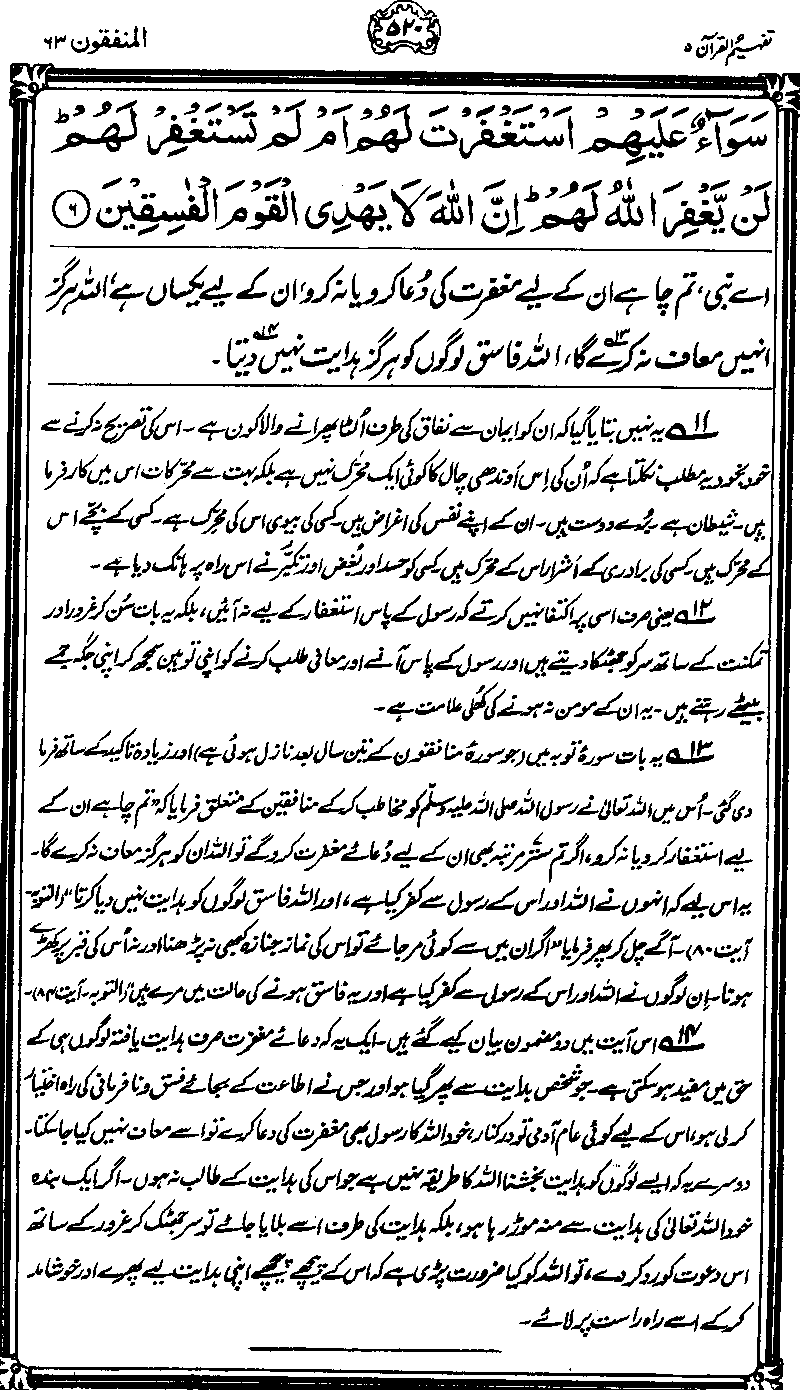 تفہیم القرآن ۵
۵۲۰
المنٰفقون ۶۳
سَوَآءٌ عَلَیْهِمْ اَسْتَغْفَرْتَ لَهُمْ اَمْ لَمْ تَسْتَغْفِرْ لَهُمْ ؕ
لَنْ یَّغْفِرَ اللّٰهُ لَهُمْ ؕ اِنَّ اللّٰهَ لَا یَهْدِی الْقَوْمَ الْفٰسِقِیْنَ ۶
اے نبی، تم چاہے ان کے لیے مغفرت کی دُعا کرو یا نہ کرو، ان کے لیے یکساں ہے، اللہ ہرگز
انہیں معاف نہ کرے گا،۱۳ اللہ فاسق لوگوں کو ہرگز ہدایت نہیں دیتا۔۱۴
۱۱ یہ نہیں بتایا گیا کہ ان کو ایمان سے نفاق کی طرف اُلٹا پھرانے والا کون ہے۔ اس کی تصریح نہ کرنے سے
خود بخود یہ مطلب نکلتا ہے کہ اُن کی اِس اوندھی چال کا کوئی ایک محرّک نہیں ہے بلکہ بہت سے محرّکات اس میں کارفرما
ہیں۔ شیطان ہے۔ بُرے دوست ہیں۔ ان کے اپنے نفس کی اغراض ہیں۔ کسی کی بیوی اس کی محرّک ہے۔ کسی کے بچّے اس
کے محرّک ہیں۔ کسی کی برادری کے اشرار اس کے محرّک ہیں۔ کسی کو حسد اور بُغض اور تکبُّر نے اس راہ پر ہانک دیا ہے۔
۱۲ یعنی صرف اسی پر اکتفا نہیں کرتے کہ رسول کے پاس استغفار کے لیے نہ آئیں، بلکہ یہ بات سُن کر غرور اور
تمکنت کے ساتھ سر کو جھٹکا دیتے ہیں اور رسول کے پاس آنے اور معافی طلب کرنے کو اپنی توہین سمجھ کر اپنی جگہ جمے
بیٹھے رہتے ہیں۔ یہ ان کے مومن نہ ہونے کی کُھلی علامت ہے۔
۱۳ یہ بات سورۂ توبہ میں (جو سورۂ منافقون کے تین سال بعد نازل ہوئی ہے) اور زیادہ تاکید کے ساتھ فرما
دی گئی۔ اُس میں اللہ تعالیٰ نے رسول اللہ صلی اللہ علیہ وسلّم کو مخاطب کر کے منافقین کے متعلق فرمایا کہ "تم چاہے ان کے
لیے استغفار کرو یا نہ کرو، اگر تم ستّر مرتبہ بھی ان کے لیے دُعائے مغفرت کرو گے تو اللہ ان کو ہرگز معاف نہ کرے گا۔
یہ اس لیے کہ انہوں نے اللہ اور اس کے رسول سے کفر کیا ہے، اور اللہ فاسق لوگوں کو ہدایت نہیں دیا کرتا" (التوبہ۔
آیت ۸۰)۔ آگے چل کر پھر فرمایا "اگر ان میں سے کوئی مر جائے تو اس کی نماز جنازہ کبھی نہ پڑھنا اور نہ اُس کی قبر پر کھڑے
ہونا۔ اِن لوگوں نے اللہ اور اس کے رسول سے کفر کیا ہے اور یہ فاسق ہونے کی حالت میں مرے ہیں" (التوبہ۔ آیت ۸۴)۔
۱۴ اس آیت میں دو مضمون بیان کیے گئے ہیں۔ ایک یہ کہ دعائے مغفرت صرف ہدایت یافتہ لوگوں ہی کے
حق میں مفید ہو سکتی ہے۔ جو شخص ہدایت سے پھر گیا ہو اور جس نے اطاعت کے بجائے فسق و نافرمانی کی راہ اختیار
کر لی ہو، اس کے لیے کوئی عام آدمی تو درکنار، خود اللہ کا رسول بھی مغفرت کی دعا کرے تو اسے معاف نہیں کیا جا سکتا۔
دوسرے یہ کہ ایسے لوگوں کو ہدایت بخشنا اللہ کا طریقہ نہیں ہے جو اس کی ہدایت کے طالب نہ ہوں۔ اگر ایک بندہ
خود اللہ تعالیٰ کی ہدایت سے منہ موڑ رہا ہو، بلکہ ہدایت کی طرف اسے بلایا جائے تو سر جھٹک کر غرور کے ساتھ
اس دعوت کو رد کر دے، تو اللہ کو کیا ضرورت پڑی ہے کہ اس کے پیچھے پیچھے اپنی ہدایت لیے پھرے اور خوشامد
کر کے اسے راہ راست پر لائے۔